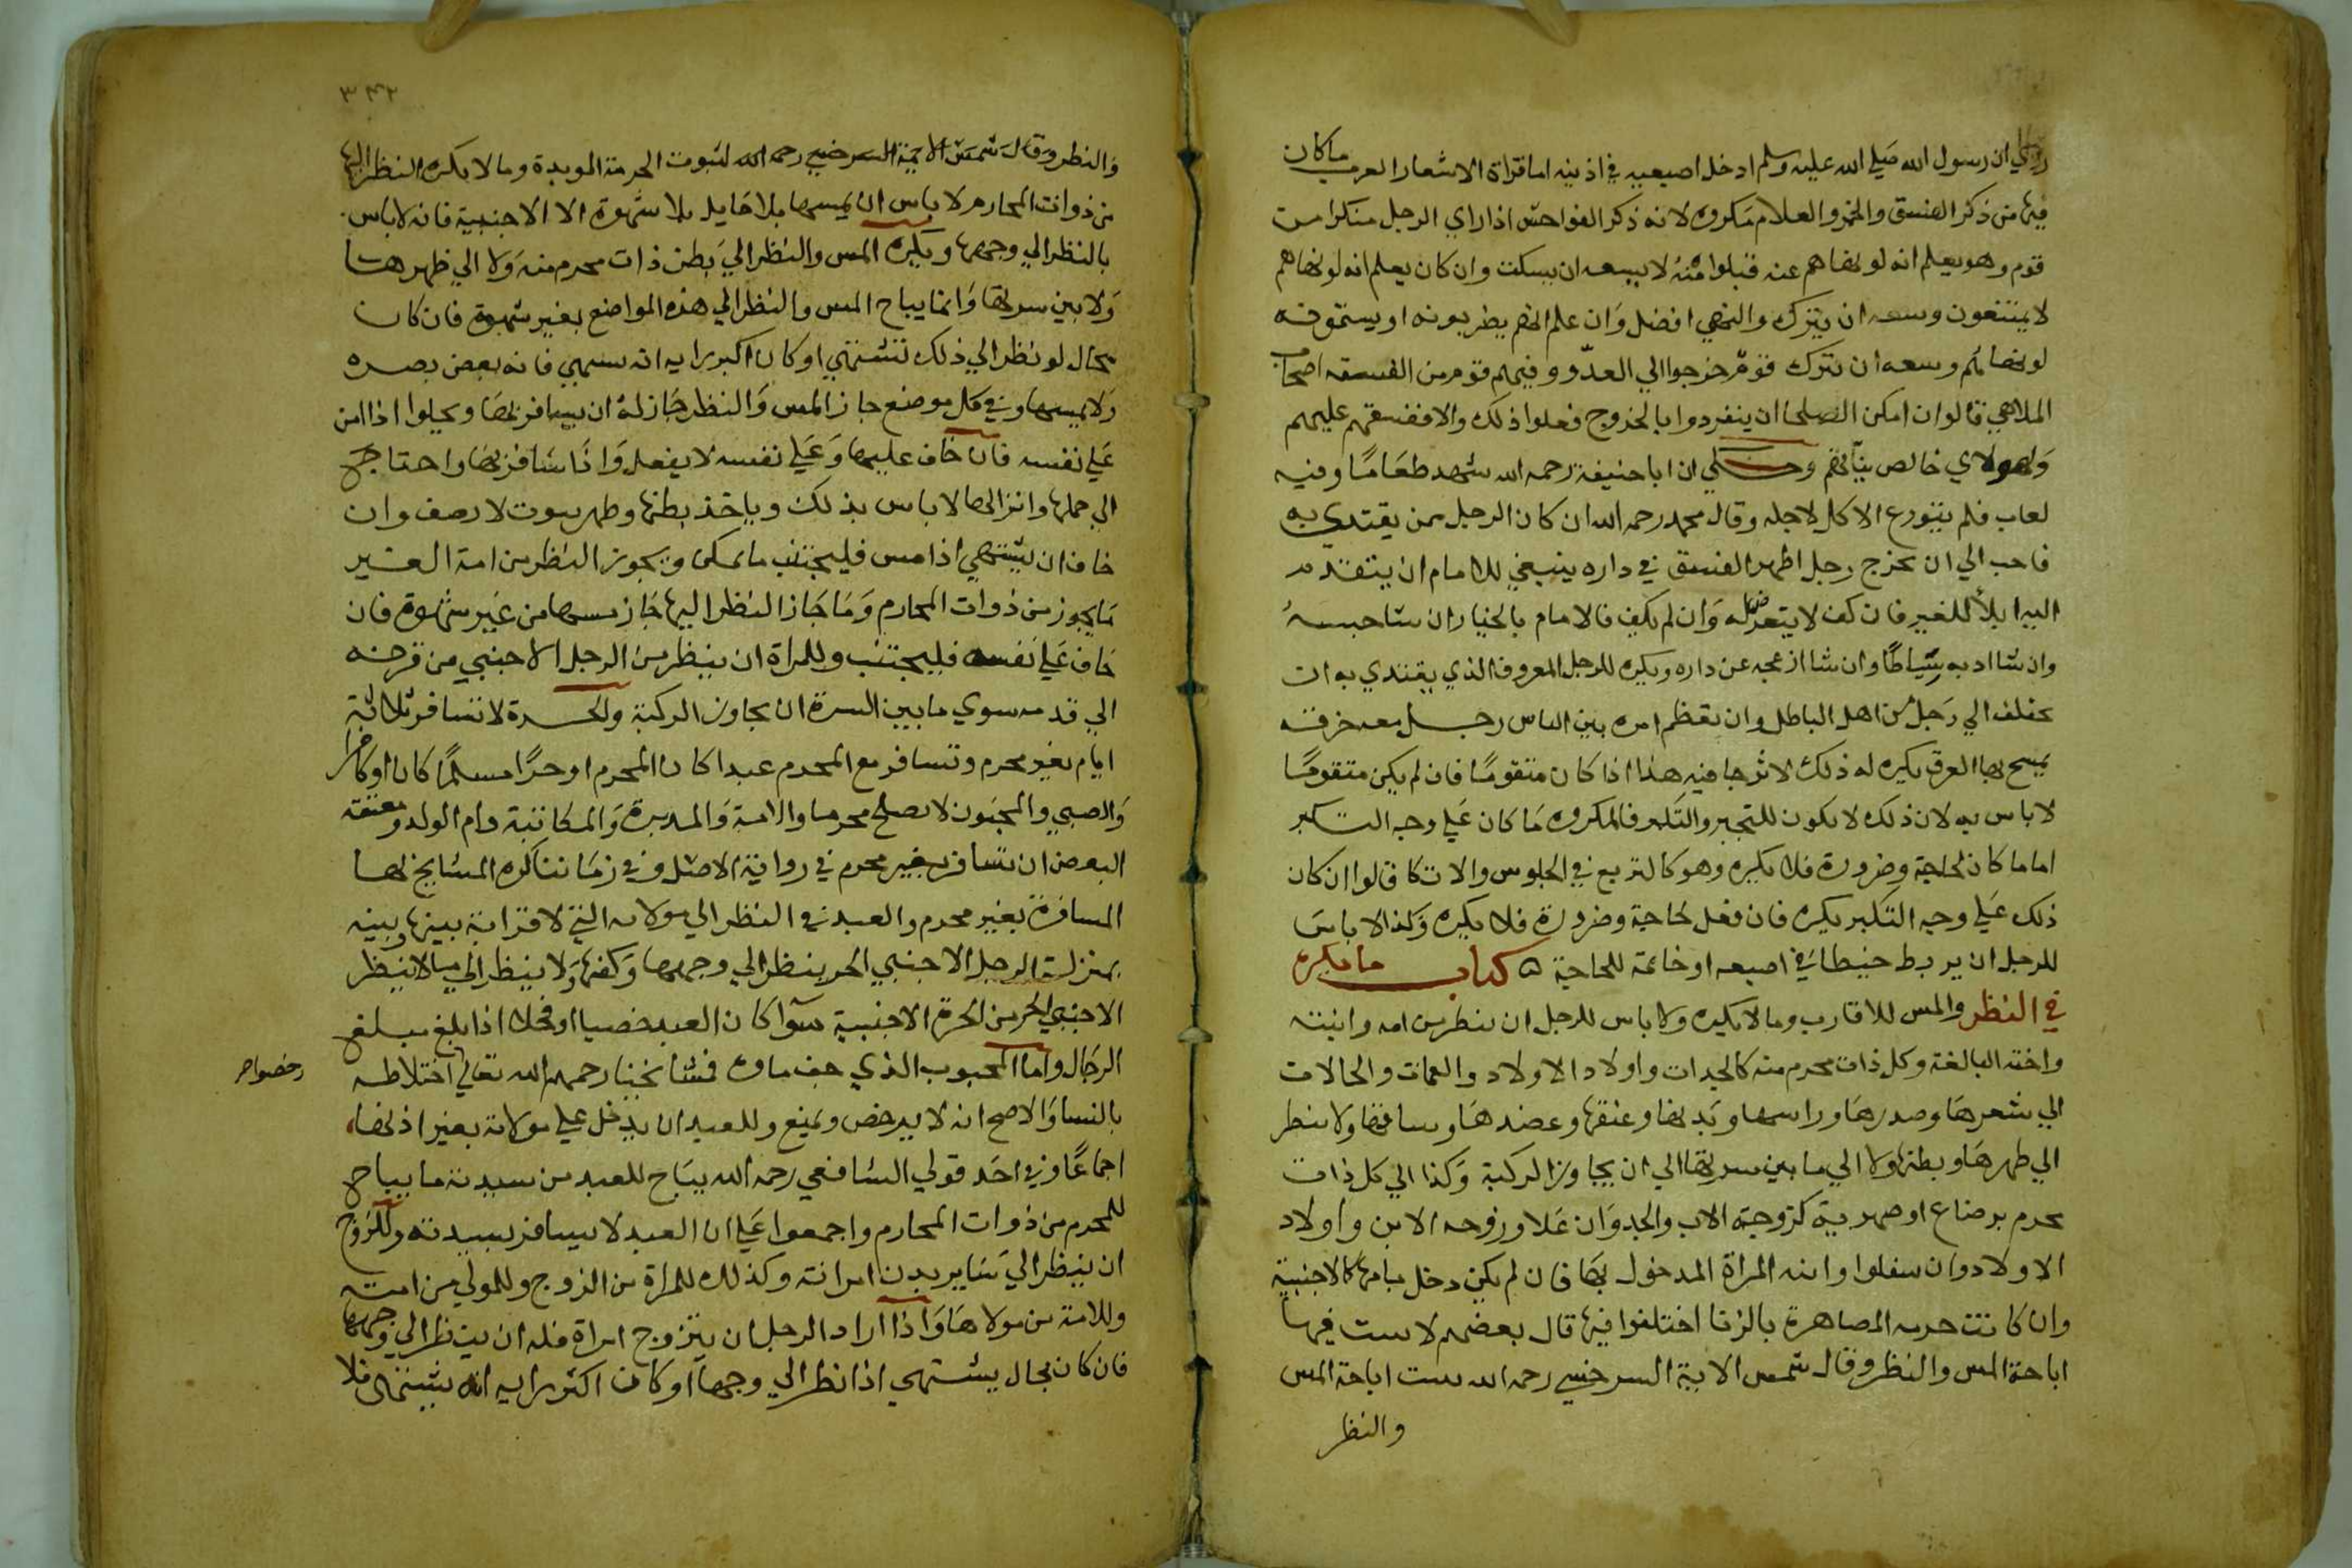 روي ان رسول الله صلي الله عليه وسلم ادخل اصبعيه في اذنيه اما قراة الاشعار العرب ما كان
فيها من ذكر الفسق والخمر والغلام مكروه لانه ذكر الفواحش اذا راي الرجل منكرا من
قوم وهو يعلم انه لو نهاهم عنه قبلوا منه لا يسعه ان يسكت وان كان يعلم انه لو نهاهم
لا يمتنعون وسعه ان يترك والنهي افضل وان علم انهم يضربونه او يستموته
لو نهاهم وسعه ان يترك قوم خرجوا الي العدو وفيهم قوم من الفسقه اصحاب
الملاهي قالوا ان امكن الصلحا ان ينفردوا بالخروج فعلوا ذلك والا ففسقهم عليهم
ولهولاي خالص نياتهم وحكي ان ابا حنيفة رحمه الله شهد طعاما وفيه
لعاب فلم يتورع الاكل لاجله وقال محمد رحمه الله ان كان الرجل ممن يقتدي به
فاحب الي ان يخرج رجل اظهر الفسق في داره ينبغي للامام ان يتقدم
اليه ابلا للغير فان كف لا يتعرض له وان لم يكف فالامام بالخيار ان شا حبسه
وان شا ادبه سياطا وان شا ازعجه عن داره ويكره للرجل المعروف الذي يقتدي به ان
يختلف الي رجل من اهل الباطل وان يعظم امره بين الناس رجل معه خرقه
يمسح بها العرق يكره له ذلك لاثر جا فيه هذا اذا كان متقوما فان لم يكن متقوما
لا باس به لان ذلك لا يكون للتجبر والتكبر فالمكروه ما كان علي وجه التكبر
اما ما كان لحاجة وضرورة فلا يكره وهو كالتربع في الجلوس والاتكا قالوا ان كان
ذلك علي وجه التكبر يكره فان فعل لحاجة وضرورة فلا يكره وكذا لا باس
للرجل ان يربط خيطا في اصبعه او خاتمه للحاجة ۵ كتاب ما يكره
في النظر والمس للاقارب وما لا يكره ولا باس للرجل ان ينظر من امه وابنته
واخته البالغة وكل ذات محرم منه كالجدات واولاد الاولاد والعمات والخالات
الي شعرها وصدرها وراسها ويديها وعنقها وعضدها وساقها ولا ينظر
الي ظهرها وبطنها ولا الي ما بين سرتها الي ان يجاوز الركبة وكذا الي كل ذات
محرم برضاع او صهرية كزوجة الاب والجد وان علا وزوجه الابن واولاد
الاولاد وان سفلوا وابنه المراة المدخول بها فان لم يكن دخل بامها كالاجنبية
وان كانت حرمه المصاهرة بالزنا اختلفوا فيها قال بعضهم لا يثبت فيها
اباحة المس والنظر وقال شمس الاية السرخسي رحمه الله يثبت اباحة المس
والنظر
٣٤٢
والنظر وقال شمس الايمة السرخسي رحمه الله لثبوت الحرمة الموبدة وما لا يكره النظر اليها
من ذوات المحارم لا باس ان يمسها بلا حايل بلا شهوة الا الاجنبية فانه لا باس
بالنظر الي وجهها ويكره المس والنظر الي بطن ذات محرم منه ولا الي ظهرها
ولا بين سرتها وانما يباح المس والنظر الي هذه المواضع بغير شهوة فان كان
بحال لو نظر الي ذلك تشتهي او كان اكبر رايه انه يشتهي فانه يغض بصره
ولا يمسها وفي كل موضع جاز المس والنظر جاز له ان يسافر بها ويخلوا اذا امن
علي نفسه فان خاف عليها وعلي نفسه لا يفعل واذا سافر بها واحتاج
الي حملها وانزالها لا باس بذلك وياخذ بطنها وظهر
خاف ان يشتهي اذا مس فليجتنب ما يمكن ويجوز النظر من امة الغير
ما يجوز من ذوات المحارم وما جاز النظر اليها جاز مسها من غير شهوة فان
خاف علي نفسه فليجتنب وللمراة ان ينظر من الرجل الاجنبي من قرنه
الي قدمه سوي ما بين السرة ان يجاوز الركبة والحرة لا تسافر ثلاثة
ايام بغير محرم وتسافر مع المحرم عبدا كان المحرم او حرا مسلما كان او كافرا
والصبي والمجنون لا يصلح محرما والامة والمدبرة والمكاتبة وام الولد ومعتقة
البعض ان تسافر بغير محرم في رواية الاصل وفي زماننا كره المشايخ لها
المسافرة بغير محرم والعبد في النظر الي مولاته التي لا قرابة بينها وبينه
بمنزلة الرجل الاجنبي الحر ينظر الي وجهها وكفها ولا ينظر الي ما لا ينظر
الاجنبي الحر من الحرة الاجنبية سوآ كان العبد خصيا او فحلا اذا بلغ مبلغ
الرجال واما المجبوب الذي جف ماوه فمشايخنا رحمهم الله تعالي اختلاطه
رخصوا
بالنسا والاصح انه لا يرخص ويمنع وللعبد ان يدخل علي مولاته بغير اذنها
اجماعا وفي احد قولي الشافعي رحمه الله يباح للعبد من سيدته ما يباح
للمحرم من ذوات المحارم واجمعوا علي ان العبد لا يسافر بسيدته وللزوج
ان ينظر الي ساير بدن امراته وكذلك للمراة من الزوج وللمولي من امته
وللامة من مولاها واذا اراد الرجل ان يتزوج امراة فله ان ينظر الي وجهها
فان كان بحال يشتهي اذا نظر الي وجهها او كان اكثر رايه انه يشتهي فلا